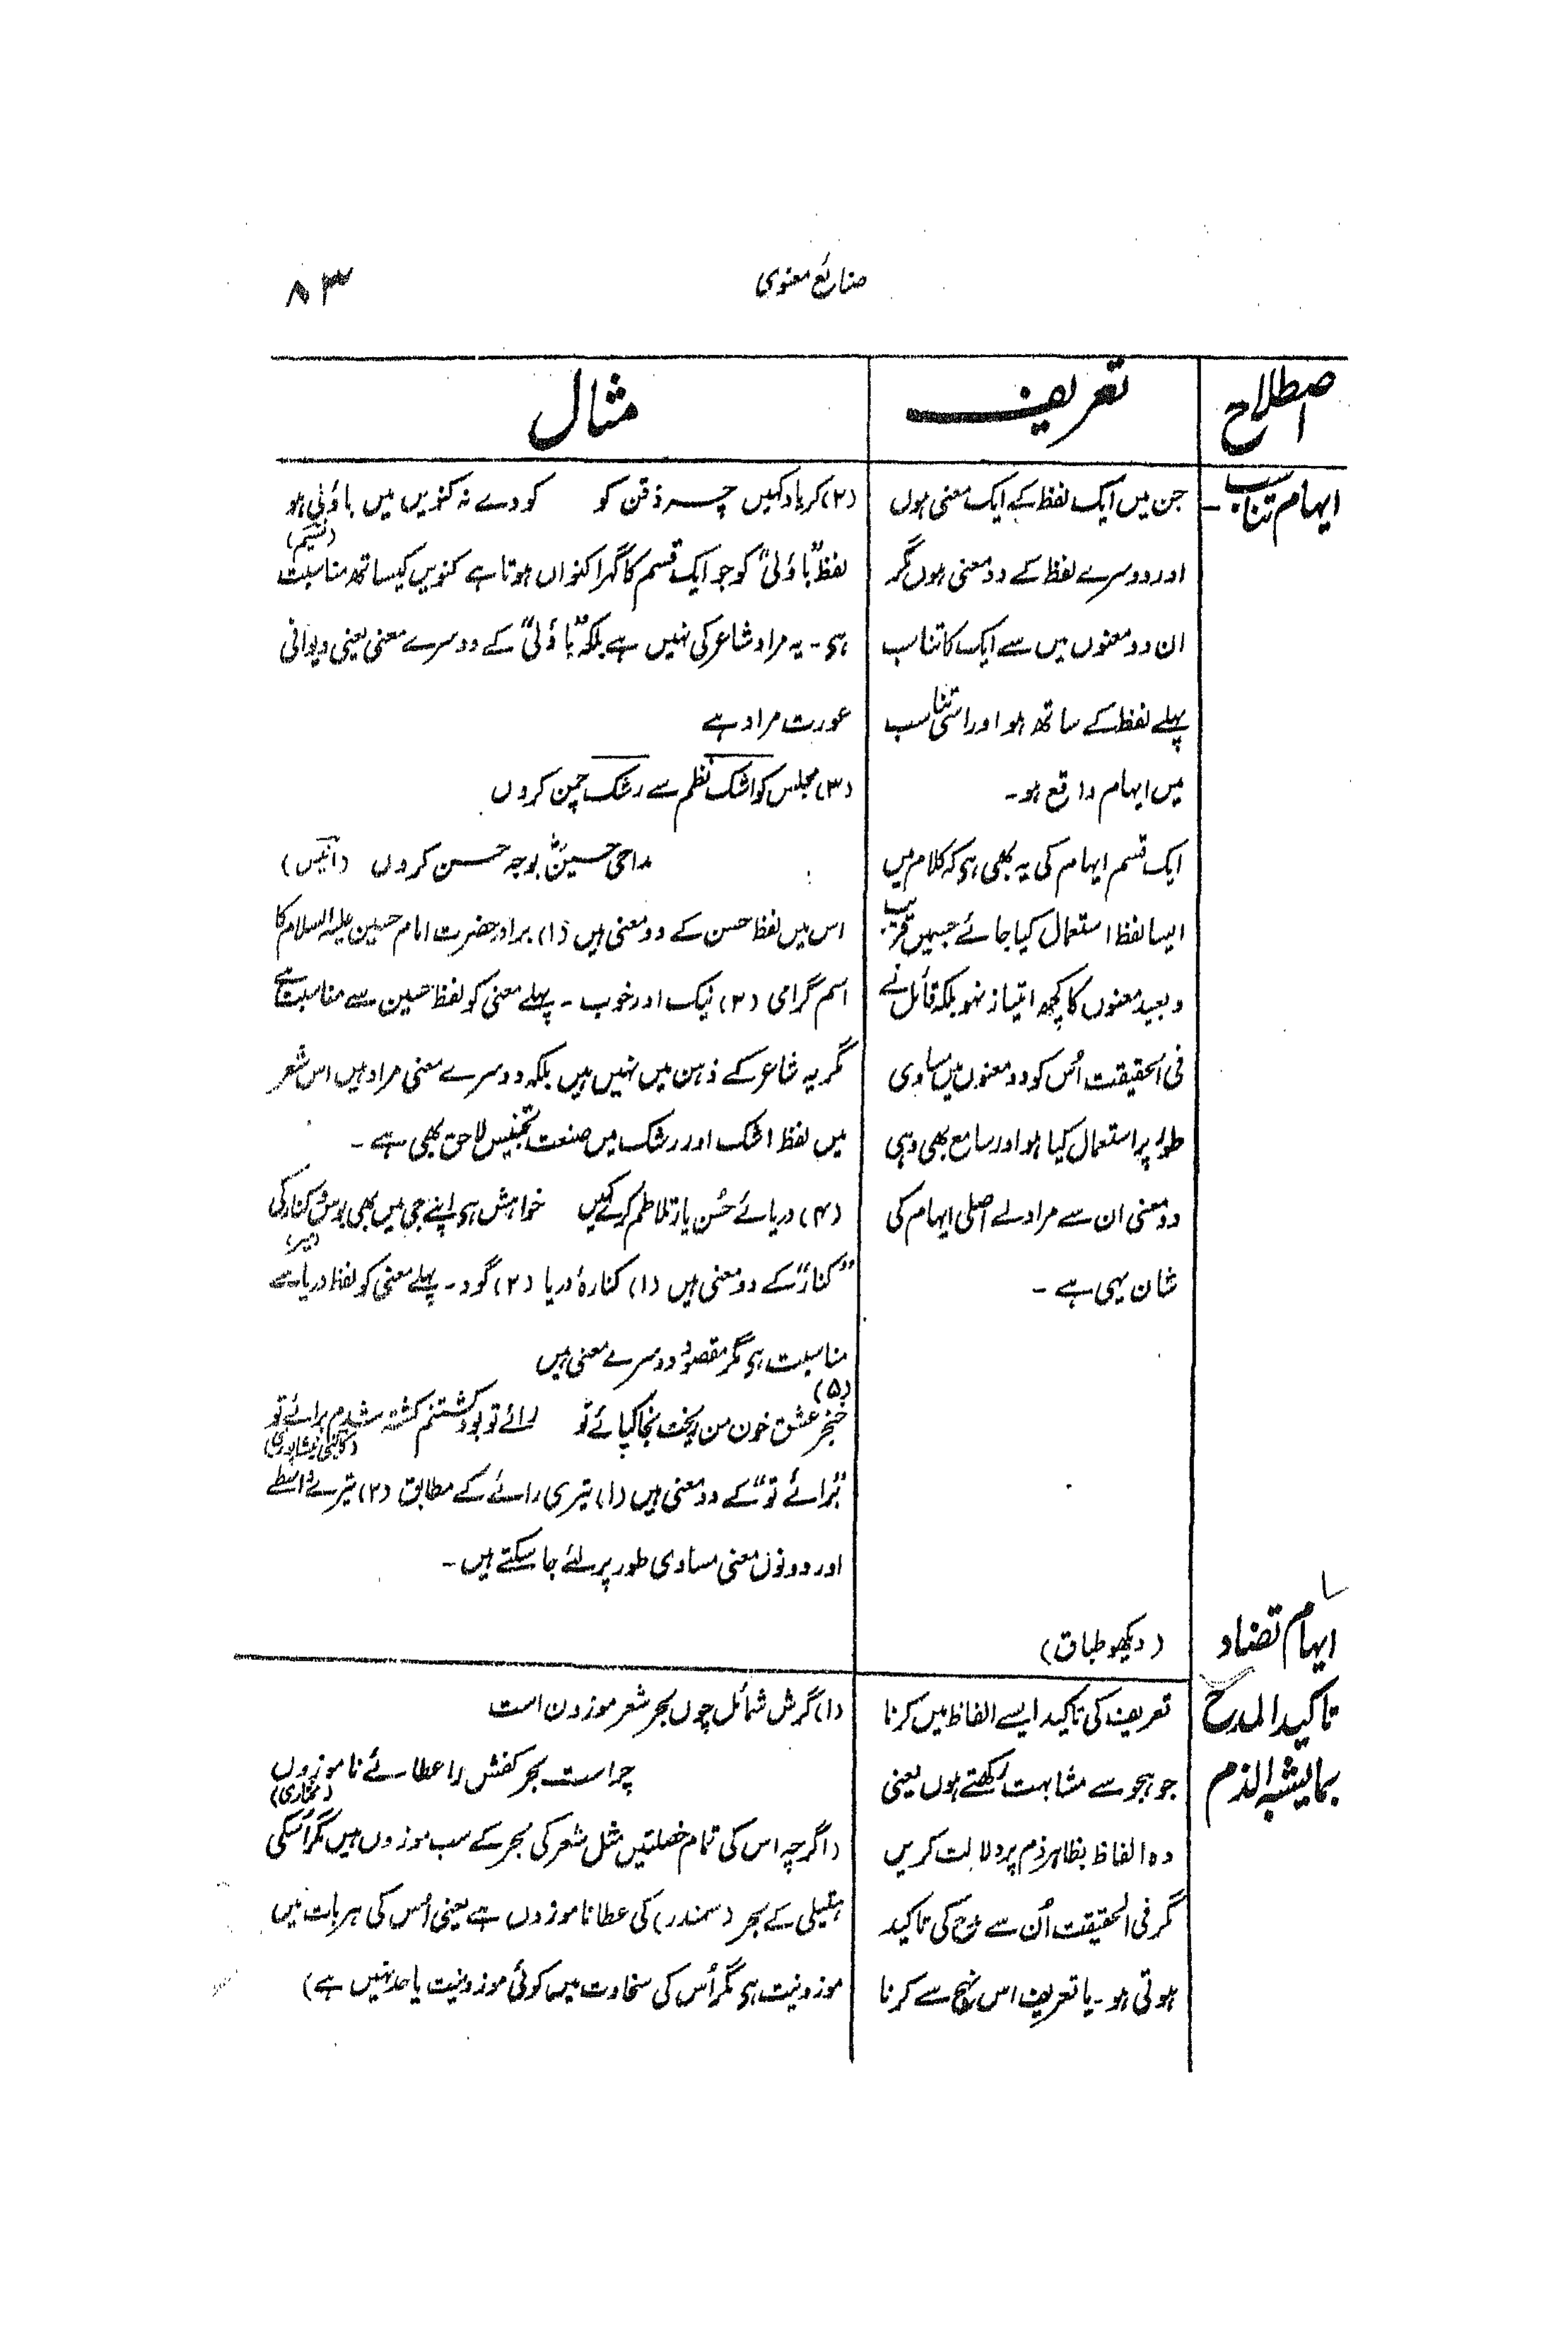 صنائع معنوی
۸۳
اصطلاح
تعریف
مثال
ایہام تناسب۔
جن میں ایک لفظ کے ایک معنی ہوں
اور دوسرے لفظ کے دو معنی ہوں مگر
ان دو معنوں میں سے ایک کا تناسب
پہلے لفظ کے ساتھ ہو اور اسی تناسب
میں ایہام واقع ہو۔
ایک قسم ایہام کی یہ بھی ہی کہ کلام میں
ایسا لفظ استعمال کیا جائے جسمیں قریب
و بعید معنوں کا کچھ امتیاز نہو بلکہ قائل نے
فی الحقیقت اُس کو دو معنوں میں مساوی
طور پر استعمال کیا ہو اور سامع بھی وہی
دو معنی ان سے مراد لے اصلی ایہام کی
شان یہی ہے۔
(۲) کر یاد کہیں چہ ذقن کو کودے نہ کنویں میں باؤلی ہو
(نسیم)
لفظ "باؤلی" کو جو ایک قسم کا گہرا کنواں ہوتا ہے کنویں کیساتھ مناسبت
ہی۔ یہ مراد شاعر کی نہیں ہے بلکہ "باؤلی" کے دوسرے معنی یعنی دیوانی
عورت مراد ہے
(۳) مجلس کو اشک نظم سے رشک چمن کروں
مداحی حسینؑ بوجہ حسن کروں (انیس)
اس میں لفظ حسن کے دو معنی ہیں (۱) برادر حضرت امام حسین علیہ السلام کا
اسم گرامی (۲) نیک اور خوب۔ پہلے معنی کو لفظ حسین سے مناسبت ہے
مگر یہ شاعر کے ذہن میں نہیں ہیں بلکہ دوسرے معنی مراد ہیں اس شعر
میں لفظ اشک اور رشک میں صنعت تجنیس لاحق بھی ہے۔
(۴) دریائے حُسن یار تلاطم کرے کہیں خواہش ہی اپنے جی میں بھی بوس و کنار کی
(میر)
"کنار" کے دو معنی ہیں (۱) کنارۂ دریا (۲) گود۔ پہلے معنی کو لفظ دریا سے
مناسبت ہی مگر مقصود دوسرے معنی ہیں
(۵)
خنجر عشق خون من ریخت بخاکپائے تو رائے تو بود کشتنم کشتہ شدم برائے تو
(کاتبی نیشاپوری)
"برائے تو" کے دو معنی ہیں (۱) تیری رائے کے مطابق (۲) تیرے واسطے
اور دونوں معنی مساوی طور پر لئے جا سکتے ہیں۔
ایہام تضاد
(دیکھو طباق)
تاکید المدح
بما یشبہ الذم
تعریف کی تاکید ایسے الفاظ میں کرنا
جو ہجو سے مشابہت رکھتے ہوں یعنی
وہ الفاظ بظاہر ذم پر دلالت کریں
مگر فی الحقیقت اُن سے مدح کی تاکید
ہوتی ہو۔ یا تعریف اس نہج سے کرنا
(۱) گرش شمائل چوں بحر شعر موزون است
چراست بحر کفش را عطائے نا موزوں
(مختاری)
(اگرچہ اس کی تمام خصلتیں مثل شعر کی بحر کے سب موزوں ہیں مگر اُسکی
ہتیلی کے بحر (سمندر) کی عطا ناموزوں ہے یعنی اُس کی ہر بات میں
موزونیت ہی مگر اُس کی سخاوت میں کوئی موزونیت یا حد نہیں ہے)